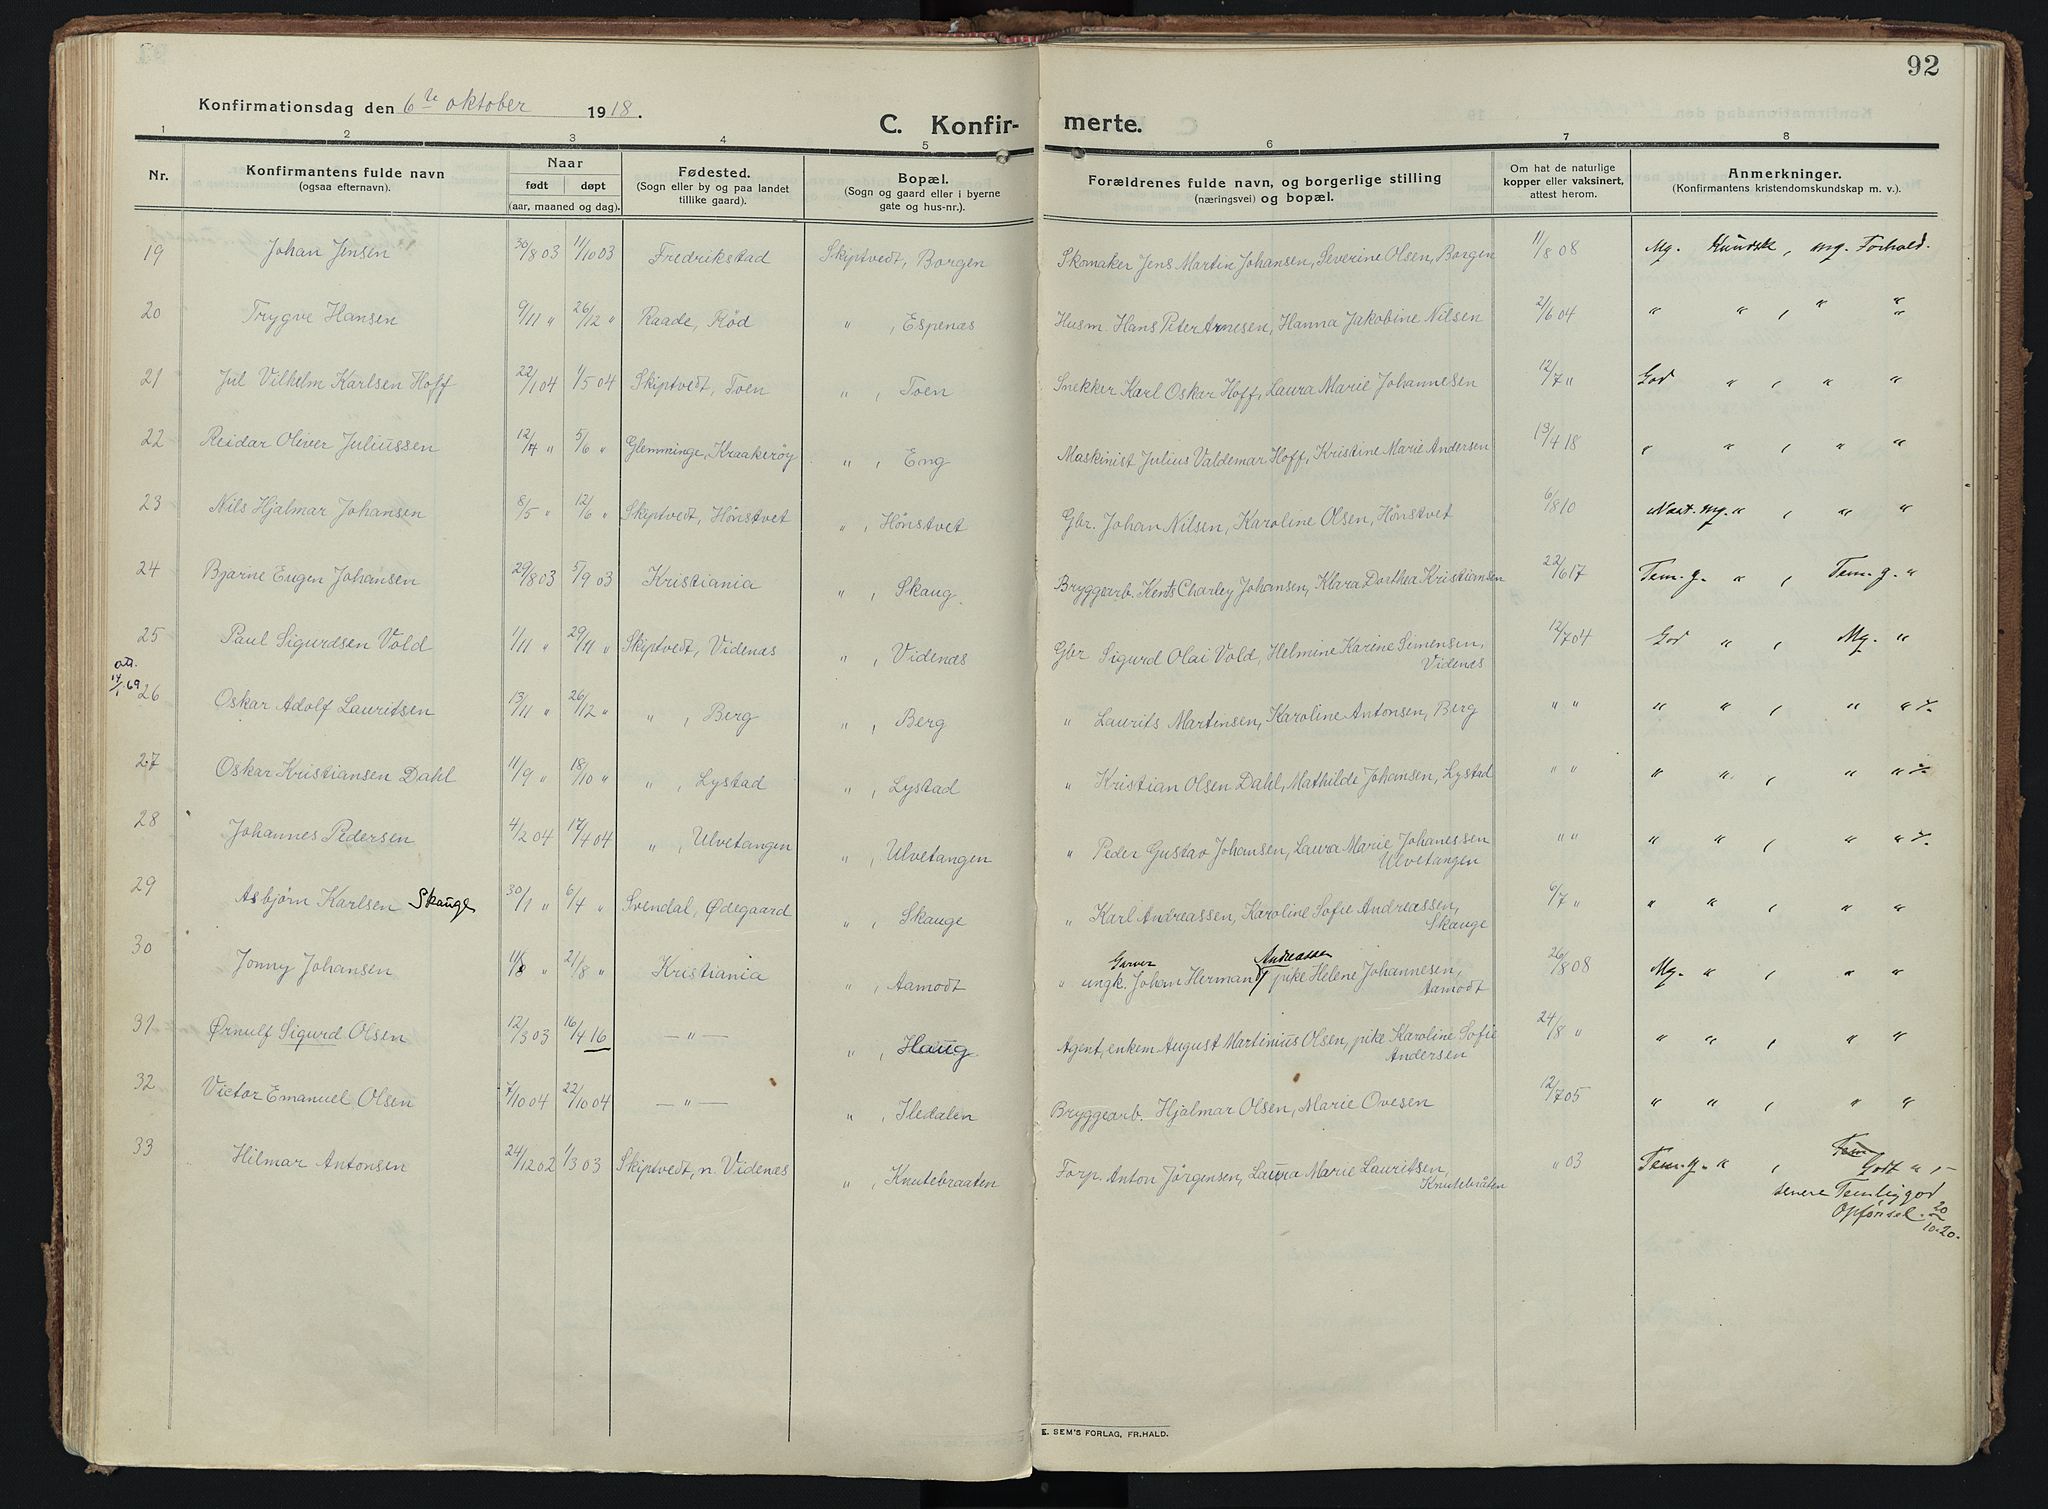 92
Konfirmationsdag den 6te oktober 1918.
C. Konfir- merte.
1 2 3 4 5 6 7 8
Nr. Konfirmantens fulde navn (ogsaa efternavn). Naar født døpt (aar, maaned og dag). Fødested. (Sogn eller by og paa landet tillike gaard). Bopæl. (Sogn og gaard eller i byerne gate og hus-nr.). Forældrenes fulde navn, og borgerlige stilling (næringsvei) og bopæl. Om hat de naturlige kopper eller vaksinert, attest herom. Anmerkninger. (Konfirmantens kristendomskundskap m. v.).
19 Johan Jensen 30/8 03 11/10 03 Fredrikstad Skiptvedt, Borgen Skomaker Jens Martin Johansen, Severine Olsen, Borgen 11/8 08 Mg. Kundsk, mg. Forhold.
20 Trygve Hansen 9/11 " 26/12 " Raade, Rød " , Espenæs Husm. Hans Peter Arnesen, Hanna Jakobine Nilsen 2/6 04 " " , " "
21 Jul Vilhelm Karlsen Hoff 22/1 04 1/5 04 Skiptvedt, Toen " , Toen Snekker Karl Oskar Hoff, Laura Marie Johannesen 12/7 " God " , " "
22 Reidar Oliver Juliussen 12/4 " 5/6 " Glemminge, Kraakerøy " , Eng Maskinist Julius Valdemar Hoff, Kristine Marie Andersen 13/4 18 " " , " "
23 Nils Hjalmar Johansen 8/5 " 12/6 " Skiptvedt, Hønstvet " , Hønstvet Gbr. Johan Nilsen, Karoline Olsen, Hønstvet 6/8 10 Næst. mg. " , " "
24 Bjarne Eugen Johansen 29/8 03 5/9 03 Kristiania " , Skaug. Bryggearb. Kents Charley Johansen, Klara Dorthea Kristiansen 22/6 17 Tem. g. " , Tem. g. "
25 Paul Sigurdsen Vold 1/11 " 29/11 " Skiptvedt, Videnæs " , Videnæs Gbr Sigurd Olai Vold, Helmine Karine Simensen, Videnæs 12/7 04 God " , Mg. "
att. 14/1 69
26 Oskar Adolf Lauritsen 13/11 " 26/12 " " , Berg " , Berg " Laurits Martinsen, Karoline Antonsen, Berg " " " " , " "
27 Oskar Kristiansen Dahl 11/9 " 18/10 " " , Lystad " , Lystad " Kristian Olsen Dahl, Mathilde Johansen, Lystad " " " " , " "
28 Johannes Pedersen 4/2 04 17/4 04 " , Ulvetangen " , Ulvetangen " Peder Gustav Johansen, Laura Marie Johanessen Ulvetangen " " " " , " "
29 Asbjørn Karlsen Skauge 30/1 " 6/4 " Svendal, Ødegaard " , Skauge " Karl Andreassen, Karoline Sofie Andreassen, Skauge 6/7 " " " , " "
30 Jonny Johansen " 21/8 " Kristiania " , Aamodt " Garver ungk. Johan Herman Andreassen pike Helene Johannesen, Aamodt 26/8 08 Mg. " , " "
31 Ørnulf Sigurd Olsen 12/3 03 16/4 16 — " — " , Haug. Agent, enkem August Martinius Olsen, pike Karoline Sofie Andersen 24/8 " " " , " "
32 Victor Emanuel Olsen 7/10 04 22/10 04 — " — " , Iledalen Bryggearb. Hjalmar Olsen, Marie Ovesen 12/7 05 " " , " "
33 Hilmar Antonsen 24/12 02 1/3 03 Skiptvedt, n. Videnæs " , Knutebraaten Forp. Anton Jørgensen, Laura Marie Lauritsen, Knutebråten " 03 Tem. g. " , Tem Godt " , -
senere Temlig god
Opførsel. 20/10-20.
E. SEM'S FORLAG, FR.HALD.